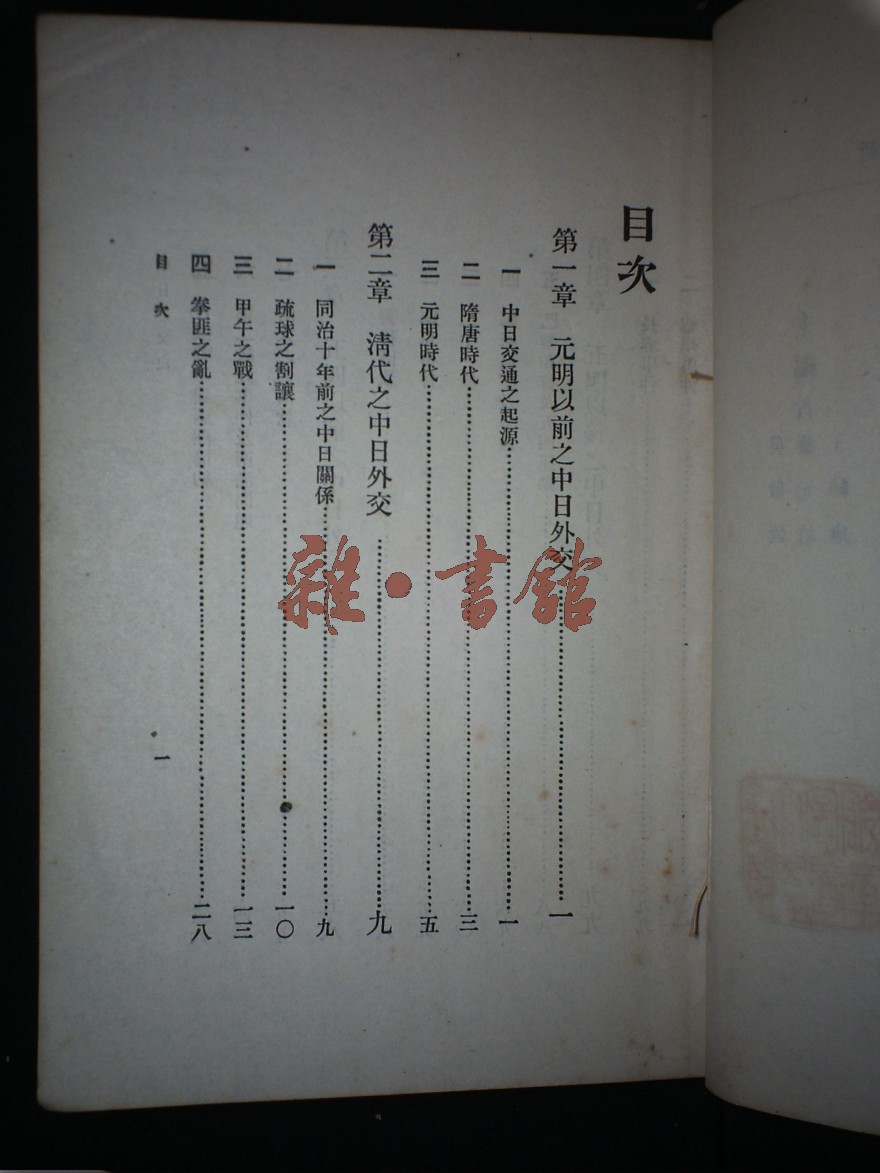 目次
第一章　元明以前之中日外交……一
一　中日交通之起源……一
二　隋唐時代……三
三　元明時代……五
第二章　清代之中日外交……九
一　同治十年前之中日關係……九
二　琉球之割讓……一〇
三　甲午之戰……一三
四　拳匪之亂……二八
目次
一
雜·書館